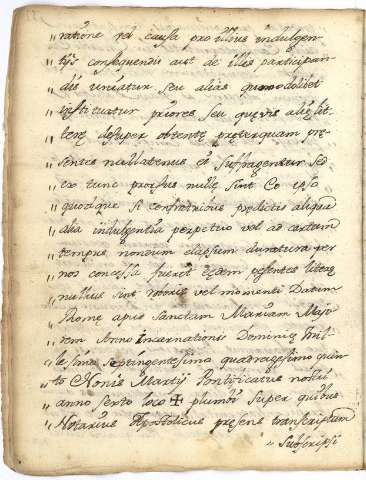 ratione vel causa pro illius indulgen-
"tijs consequendis aut de illis participan-
"dis uneatur seu alias quomodolibet
"instituatur priores seu quevis alię lit-
"terę desuper obtentę pręterquam prę-
"sentes nullatenus ei suffragentur sed
"ex tunc prorsus nullę sint eo ipso
"quodque si confratribus prędictis aliqua
"alia indulgentia perpetuo vel ad certam
"tempus nondum elapsum duratura per
"nos concessa fuerit eędem pesentes literę
"nullius sint roboris vel momenti Datum
"Romę apud Sanctam Mariam Majo-
"rem Anno incarnationis Dominicę Mil-
"lesimo septingentesimo quadragessimo quin-
"to Nonis Martij Pontificatus nostri
"anno sexto loco ✠ plumbi super quibus
"Notarius Apostolicus presens transcriptum
"subscripsi